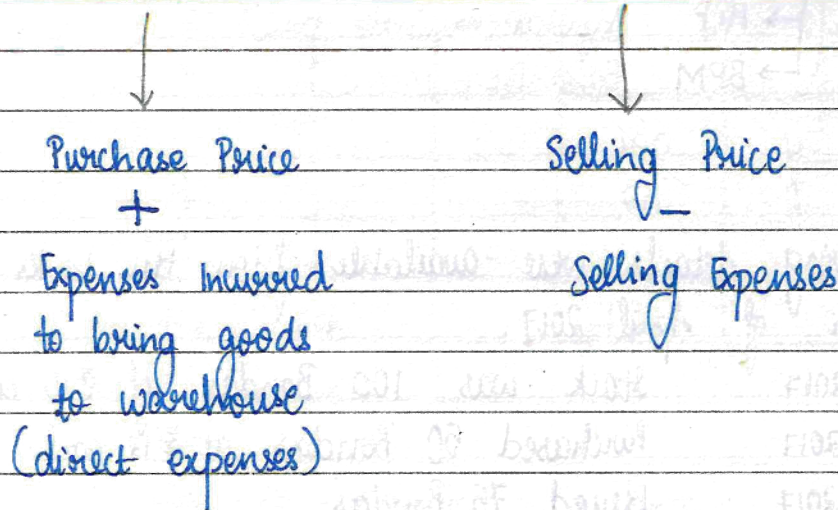 Purchase Price
+
Expenses Incurred
to bring goods
to warehouse
(direct expenses)
Selling Price
-
Selling Expenses